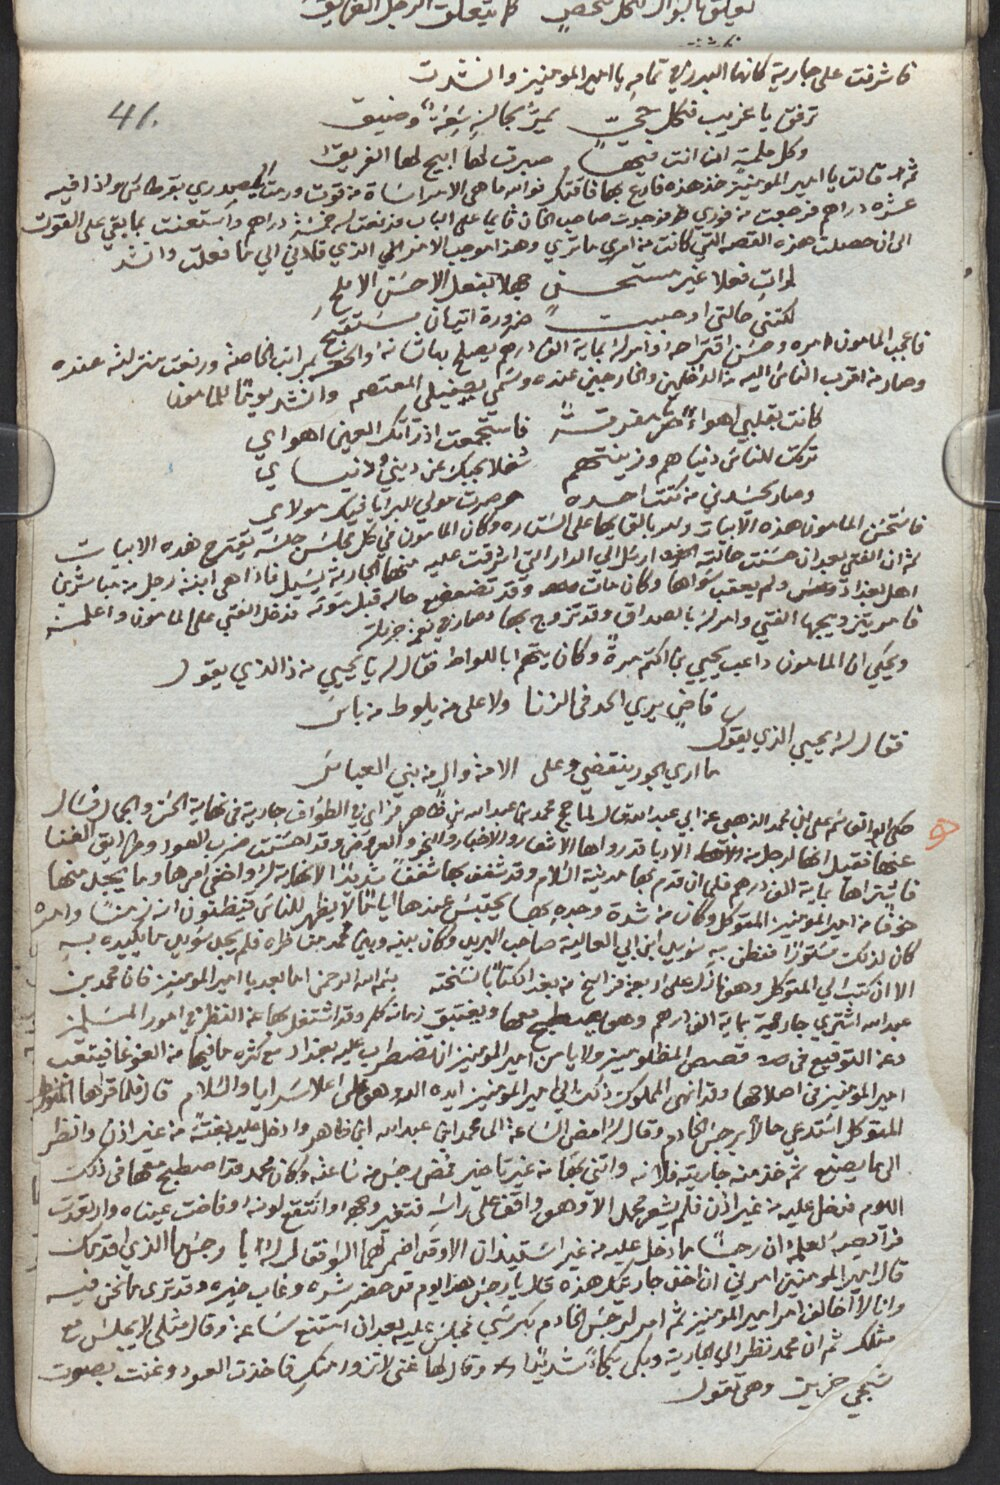 فاشرفت على جارية كانها البدر في تمامه يا امير المومنين وانشدت
41.
ترفق يا غريب فكل شيء يمر بحاله سعة وضيق
وكل ملمة ان انت فيها صبرت لها اتيح لها الفريق
ثم قالت يا امير المومنين خذ هذه فادع بها فاقتك فوالله ما هي الا مواساة من قوت ورمت الي بقرطاس واذا فيه
عشره دراهم فرجعت من فوري فوجدت صاحب الخان قايما على الباب فدفعت له خمسة دراهم واستعنت بما بقي على القوت
الى ان حصلت هذه القصه التي كانت من امري ما تري وهذا موجب الامر الذي قادني الي ما فعلت وانشد
لم ات فعلا غير مستحسن جهلا بفعل الاحسن الاملح
لكنني حالتي اوجبت ضرورة اتيان مستقبح
فاعجب المامون امره وحسن اقتراحه وامر له بماية الف درهم يصلح بها شانه والحقه بمراتب الخاصة ورفعت منزلته عنده
وصار من اقرب الناس اليه من الداخلين والخارجين عنده وانشد يوما للمامون
كانت بقلبي اهواء مفرقة فاستجمعت اذ راتك العين اهواي
تركت للناس دنياهم وزينتهم شغلا بحبك عن ديني ودنياي
وصار يحسدني من كنت احسده وصرت مولى البرايا فيك مولاي
فاستحسن المامون هذه الابيات وامر بالقايها على الستاره وكان المامون في كل مجلس جلسه يقترح هذه الابيات
ثم ان الفتى بعد ان حسنت حالته ارسل الى الدار التي اشرفت عليه منها الجارية يسيل فاذا هي ابنة رجل من مباشري
اهل بغداد ولم يعقب سواها وكان مات وقد تضعضع حاله قبل موته فدخل الفتى على المامون واعلمه
فامر بتزويجها الفتى وامر له بالصداق وقد تزوج بها وصار في نعم جزيلة
ويحكي ان المامون داعب يحيي بن اكثم مرة وكان يتهم باللواط فقال له يا يحيي من ذا الذي يقول
قاضي يري الحد في الزنا ولا على من يلوط من باس
فقال له يحيي الذي يقول
ما اري الجور ينقضي وعلى الامة وال من بني العباس
حكى ابو القاسم على بن محمد الذهبي عن ابي عبد الله قال لما حج محمد بن عبد الله بن طاهر فراى في الطواف جارية في نهاية الحسن والجمال فسال
عنها فقيل انها لرجل من الادبا قد رواها الاشعار والاخبار والنحو والعروض وقد احسنت ضرب العود وطرايق الغنا
فاشتراها بماية الف درهم فلما ان قدم بها مدينة السلام وقد شغف بها شغفا شديدا لا نهاية له واخفى امرها وما يجد منها
خوفا من امير المومنين المتوكل وكان من شدة وجده بها يحتبس عندها اياما لا يظهر للناس فيظنون انه زمنا وامره
كان لذلك مستورا ففطن به سويد ابن ابي العالية صاحب البريد وكان بينه وبين محمد مناظره فلم يجد سويد ما يكيده به
الا ان كتب الي المتوكل وهو نازل على اربعة فراسخ من بغداد كتابا نسخته بسم الله الرحمن اما بعد يا امير المومنين فان محمد بن
عبد الله اشتري جارية بماية الف درهم وهو يصطبح معها ويغتبق زمانه كله وقد اشتغل بها عن النظر في امور المسلمين
وعن التوقيع في قصص المظلومين ولا يامن امير المومنين ان تضطرب عليه بغداد مع كثره ما فيها من الغوغا فيتعب
امير المومنين في اصلاحها وقد انهى المملوك ذلك الي امير المومنين ايده الله وهو على اعلا سرايا والسلام قال فلما قراها
المتوكل استدعي حالا برجس الخادم وقال له امض الساعة الى محمد ابن عبد الله ابن طاهر وادخل عليه بغتة من غير اذن وانظر
الي ما يصنع ثم خذ منه جاريته فلانه واتني بها من غير تاخير فمضى رجس من ساعته وكان محمد قد اصطبح معها في ذلك
اليوم فدخل عليه من غير اذن فلم يشعر محمد الا وهو واقف على راسه فتغير وجهه وانتقع لونه وفاضت عيناه وارتعدت
فرايصه لعلمه ان رجسا ما دخل عليه من غير استيذان الا وقد اضمر لهما الموافق له يا رجس ما الذي اقدمك
قال امير المومنين امرني ان اخذ جاريتك هذه قال يا رجس هذا اليوم قد حضر شره وغاب خيره وقد ترى ما نحن فيه
وانا لا اخالف امر امير المومنين ثم امر لرجس الخادم بكرسي فجلس عليه بعد ان امتنع ساعة وقال مثلي لا يجلس مع
مثلك ثم ان محمد نظر الي الجارية وبكى بكاء شديدا وقال لها غني لاتزود منك فاخذت العود وغنت بصوت
شجي حزين وهي تقول